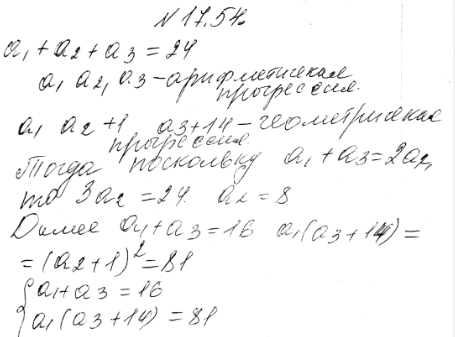 № 17.54.
a₁ + a₂ + a₃ = 24
a₁ a₂, a₃ - арифметическая
прогрессия.
a₁ a₂+1 a₃+14 - геометрическая
прогрессия.
Тогда поскольку a₁ + a₃ = 2a₂,
то 3a₂ = 24. a₂ = 8
Далее a₁ + a₃ = 16 a₁(a₃+14) =
= (a₂+1)² = 81
{ a₁ + a₃ = 16
{ a₁(a₃+14) = 81